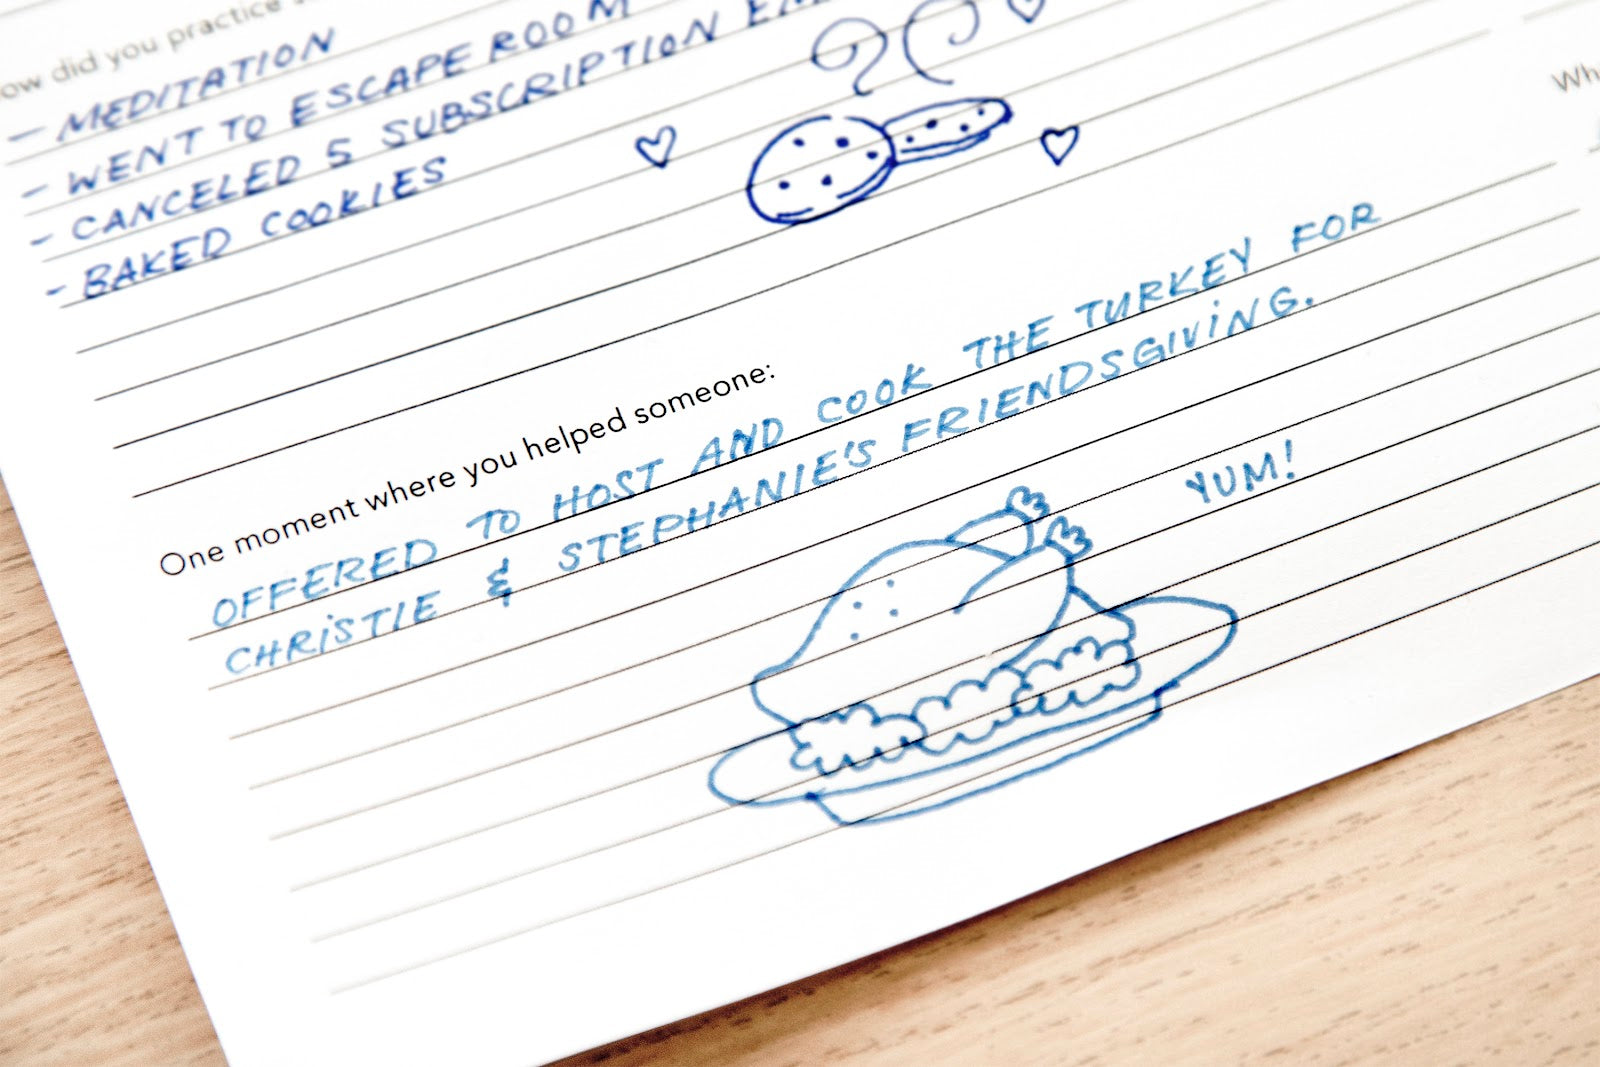 ow did you practice
- MEDITATION
- WENT TO ESCAPE ROOM
- CANCELED 5 SUBSCRIPTION
- BAKED COOKIES
One moment where you helped someone:
OFFERED TO HOST AND COOK THE TURKEY FOR
CHRISTIE & STEPHANIE'S FRIENDSGIVING.
YUM!
Wh